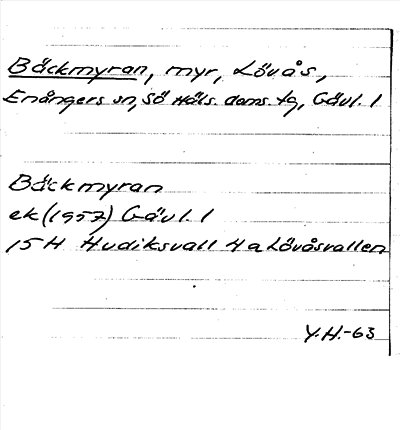 Bäckmyran, myr, Lövås,
Enångers sn, Sö Häls. doms. tg, Gävl. l
Bäckmyran
ek (1957) Gävl. l
15H Hudiksvall 4a Lövåsvallen
Y.H.-63